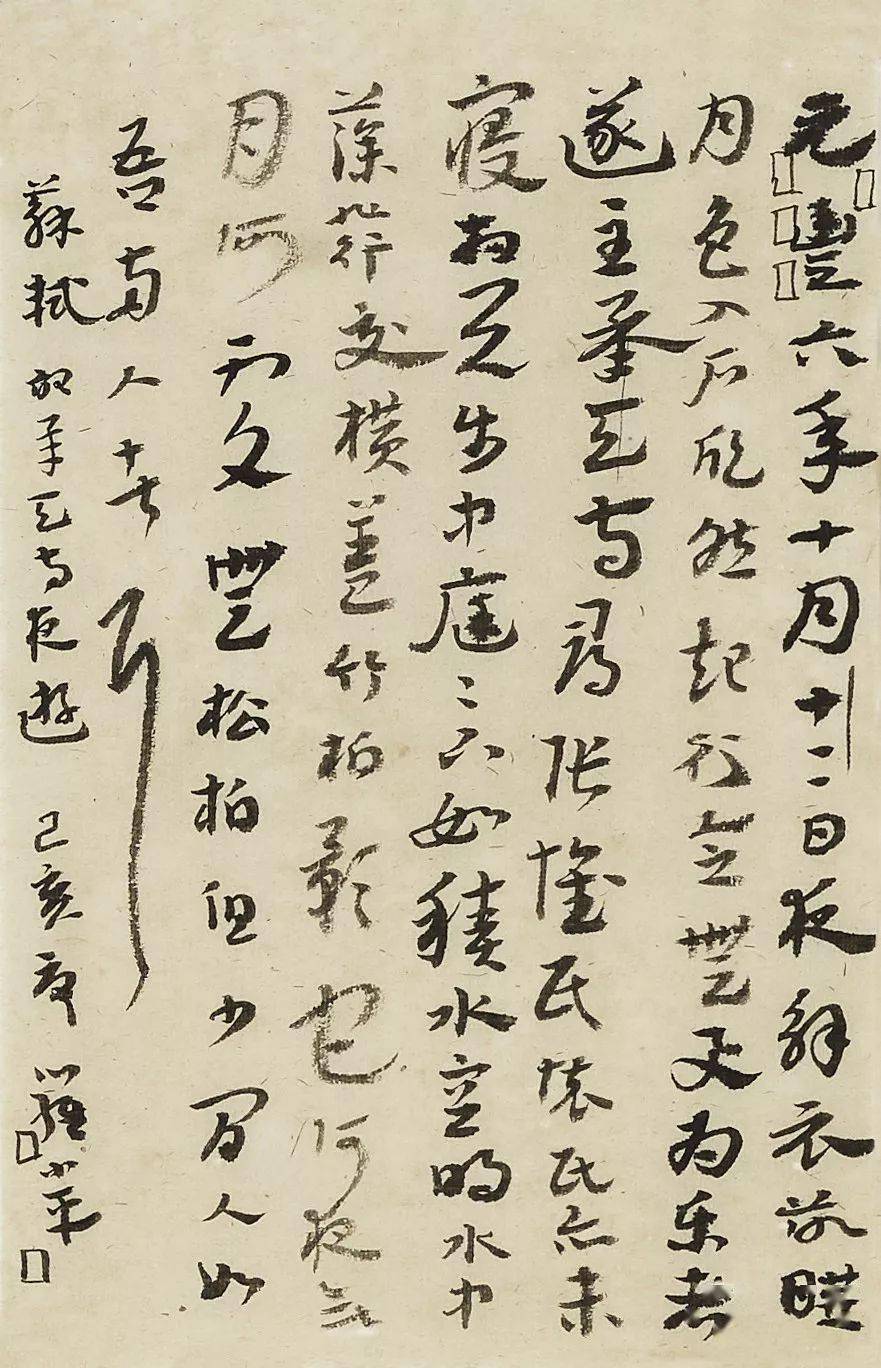 元豐六年十月十二日夜解衣欲睡
月色入戶欣然起行念無與為樂者
遂至承天寺尋張懷民懷民亦未
寢相與步中庭〻下如積水空明水中
藻荇交橫蓋竹柏影也何夜無
月何處無松柏但少閒人如
吾兩人者耳
蘇軾 記承天寺夜遊 己亥 小平